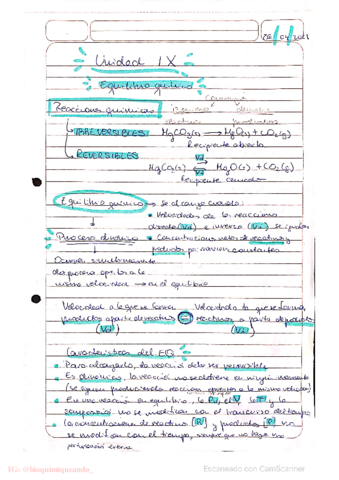 Unidad IX
Equilibrio químico
Reacciones químicas
IRREVERSIBLES MgCO3(s) → MgO(s) + CO2(g)
Recipiente abierto
REVERSIBLES Vd
MgCO3(s) ⇄ MgO(s) + CO2(g)
Vi
Recipiente cerrado
Equilibrio químico → se alcanza cuando:
• Velocidades de la reacción
directa (Vd) e inversa (Vi) se
Proceso dinámico • Concentraciones de reactivos y
productos permanecen constantes
Ocurren simultáneamente
dos procesos opuestos a la
misma velocidad → en el equilibrio
Velocidad a la que se forma Velocidad a la que se forma
productos a partir de reactivos = reactivos a partir de productos
(Vd) (Vi)
Características del EQ
• Para alcanzarlo, la reacción debe ser reversible
• Es dinámico, la reacción no se detiene en ningún momento
(se siguen produciendo reacciones opuestas a la misma velocidad)
• En una reacción en equilibrio, la P, el V, la T y la
composición no se modifican con el transcurso del tiempo
• La concentración de reactivos [R] y productos [P] no
se modifican con el tiempo, siempre que no haya una
perturbación externa
IG: @bioquimiqueando_
Escaneado con CamScanner